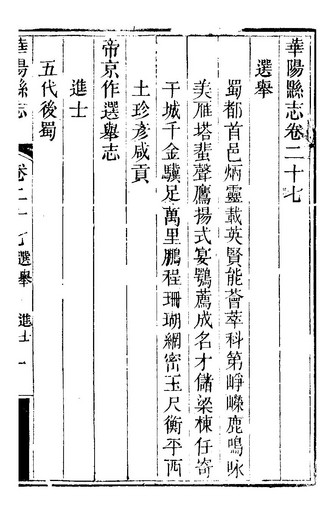 華陽縣志卷二十七
選舉
蜀都首邑炳靈載英賢能薈萃科第崢嶸鹿鳴咏
美雁塔蜚聲鷹揚式宴鶚薦成名才儲梁棟任寄
干城千金驥足萬里鵬程珊瑚網密玉尺衡平西
土珍彥咸貢
帝京作選舉志
進士
五代後蜀
華陽縣志 卷二十七 選舉 進士 一